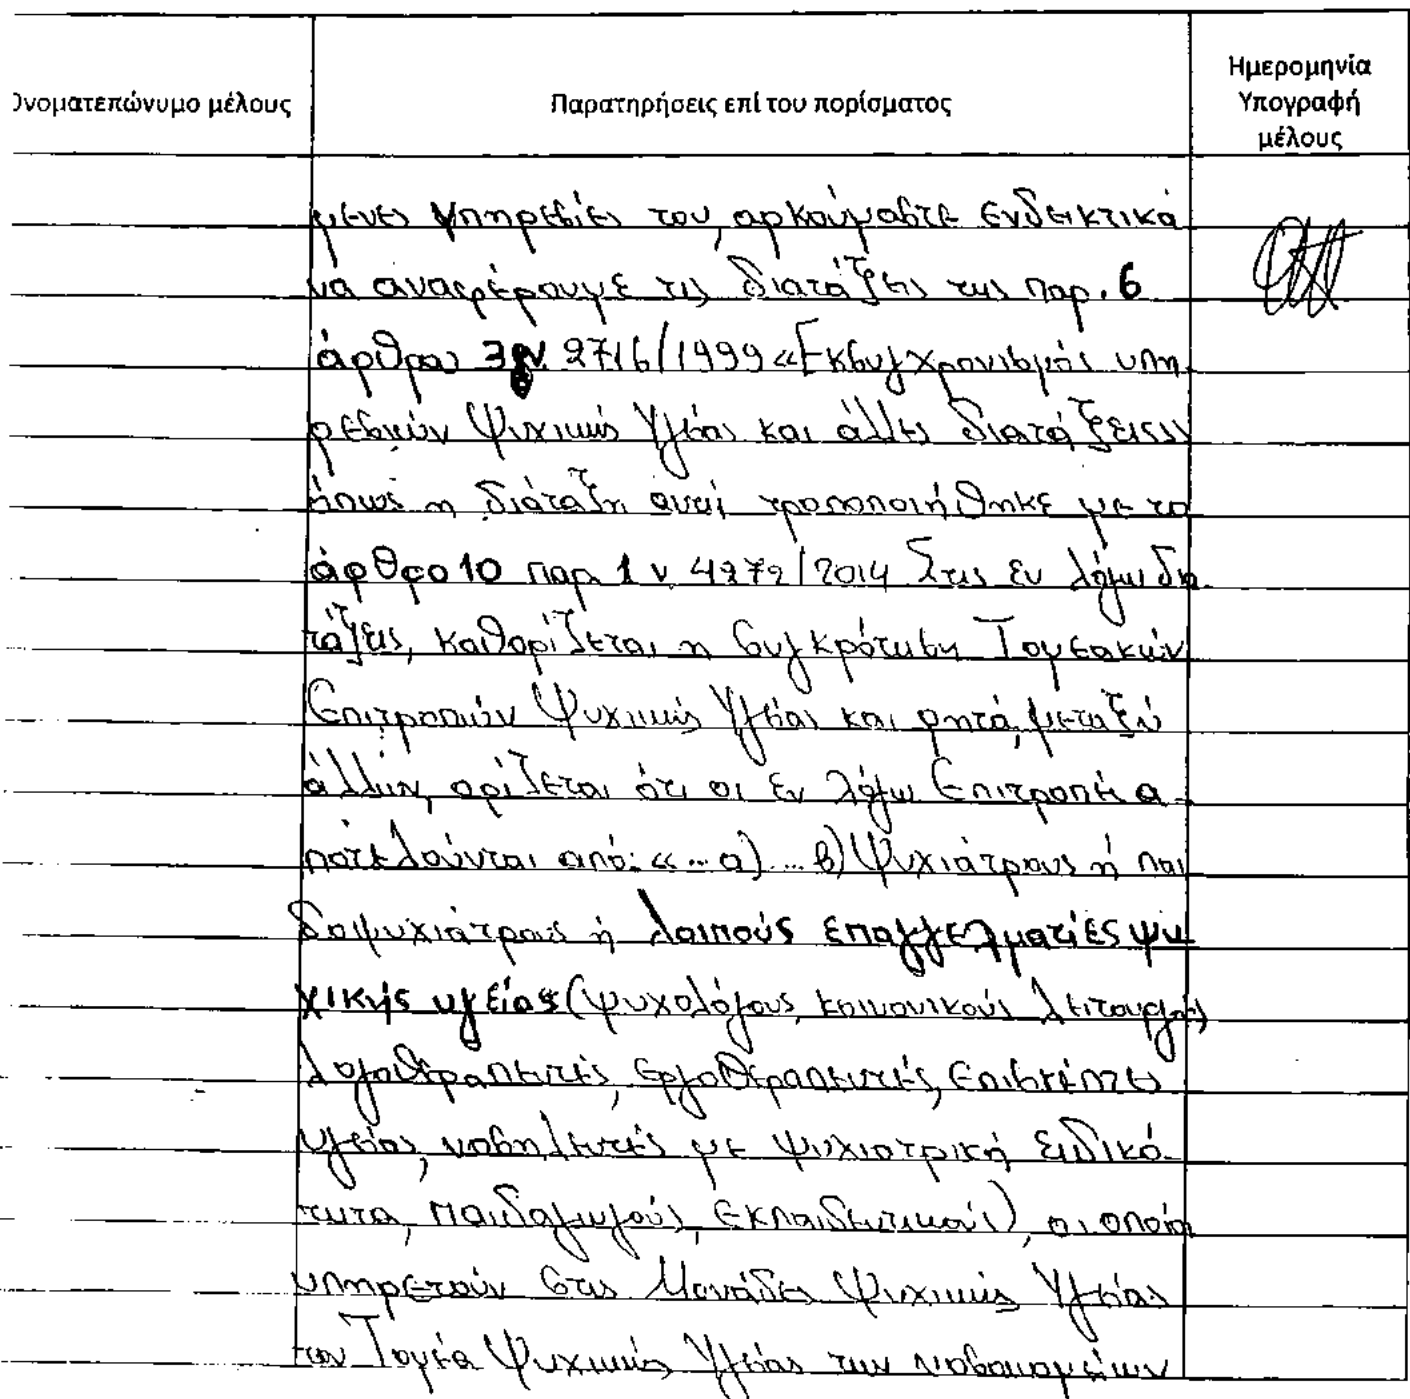 Ονοματεπώνυμο μέλους
Παρατηρήσεις επί του πορίσματος
Ημερομηνία
Υπογραφή
μέλους
μενες υπηρεσίες του, αρκούμαστε ενδεικτικά
να αναφέρουμε τις διατάξεις της παρ. 6
άρθρου 3 ν. 2716/1999 «Εκσυγχρονισμός υπη
ρεσιών Ψυχικής Υγείας και άλλες διατάξεις»
όπως η διάταξη αυτή τροποποιήθηκε με το
άρθρο 10 παρ. 1 ν 4272/2014 Στις εν λόγω δια
τάξεις, καθορίζεται η συγκρότηση Τομεακών
Επιτροπών Ψυχικής Υγείας και ρητά, μεταξύ
άλλων, ορίζεται ότι οι εν λόγω Επιτροπές α-
ποτελούνται από: «... α) ... β) Ψυχιάτρους ή παι
δοψυχιάτρους ή λοιπούς επαγγελματίες ψυ
χικής υγείας (ψυχολόγους, κοινωνικούς λειτουργούς
λογοθεραπευτές, εργοθεραπευτές, επισκέπτες
υγείας, νοσηλευτές με ψυχιατρική ειδικό-
τητα, παιδαγωγούς, εκπαιδευτικούς), οι οποίοι
υπηρετούν στις Μονάδες Ψυχικής Υγείας
του Τομέα Ψυχικής Υγείας των νοσοκομείων